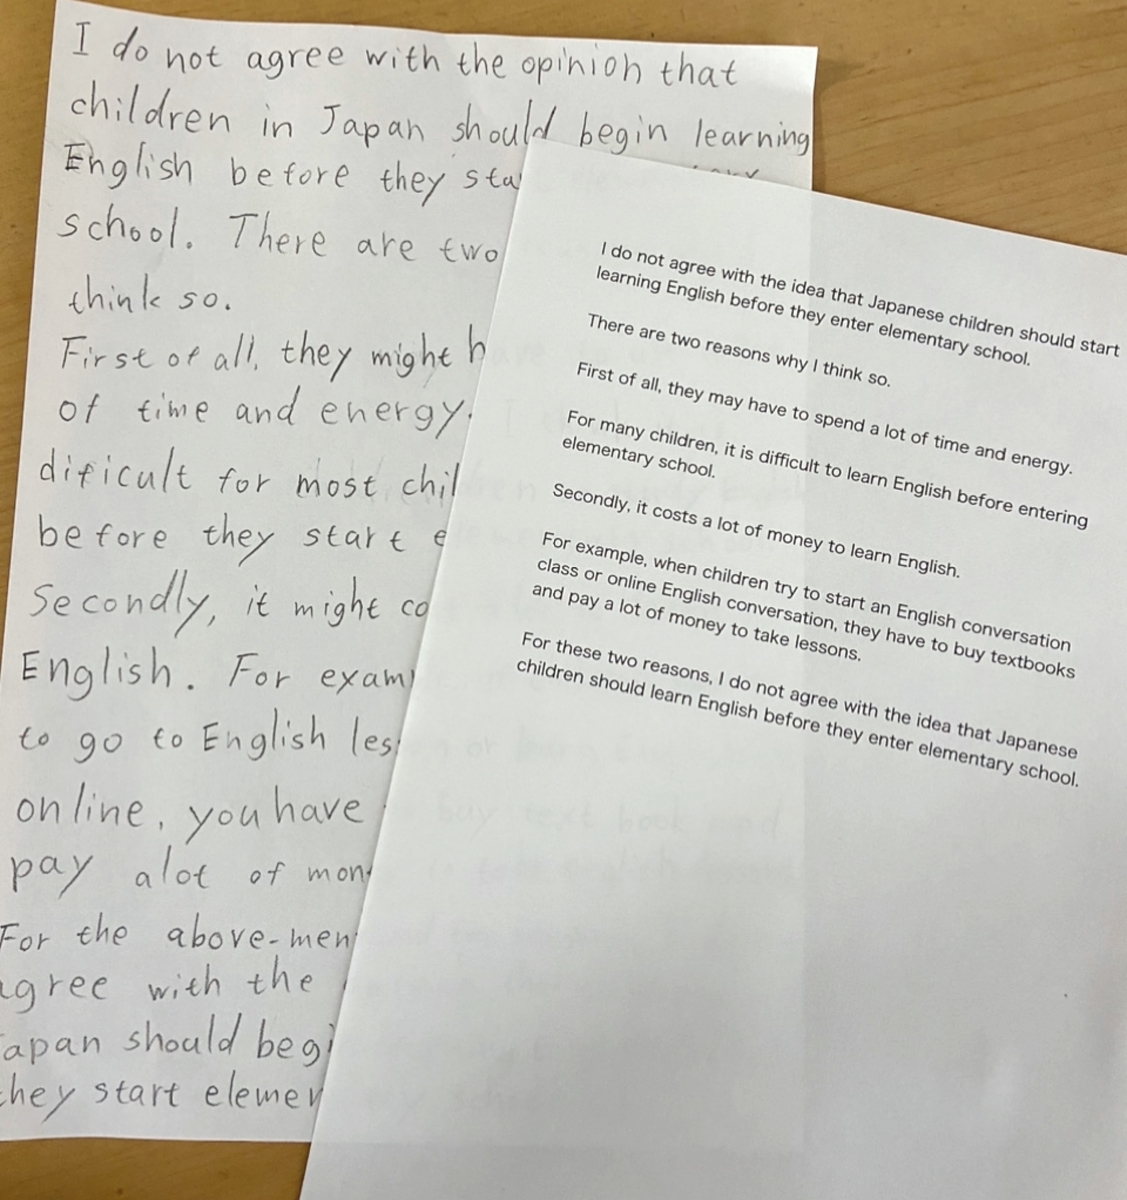 I do not agree with the opinion that
children in Japan should begin learning
English before they
school. There are two
think so.
First of all, they might
of time and energy.
dificult for most
before they start
Secondly, it might
English. For
to go to English
online, you have
pay alot of
For the
agree with the
should
they start
I do not agree with the idea that Japanese children should start
learning English before they enter elementary school.
There are two reasons why I think so.
First of all, they may have to spend a lot of time and energy.
For many children, it is difficult to learn English before entering
elementary school.
Secondly, it costs a lot of money to learn English.
For example, when children try to start an English conversation
class or online English conversation, they have to buy textbooks
and pay a lot of money to take lessons.
For these two reasons, I do not agree with the idea that Japanese
children should learn English before they enter elementary school.